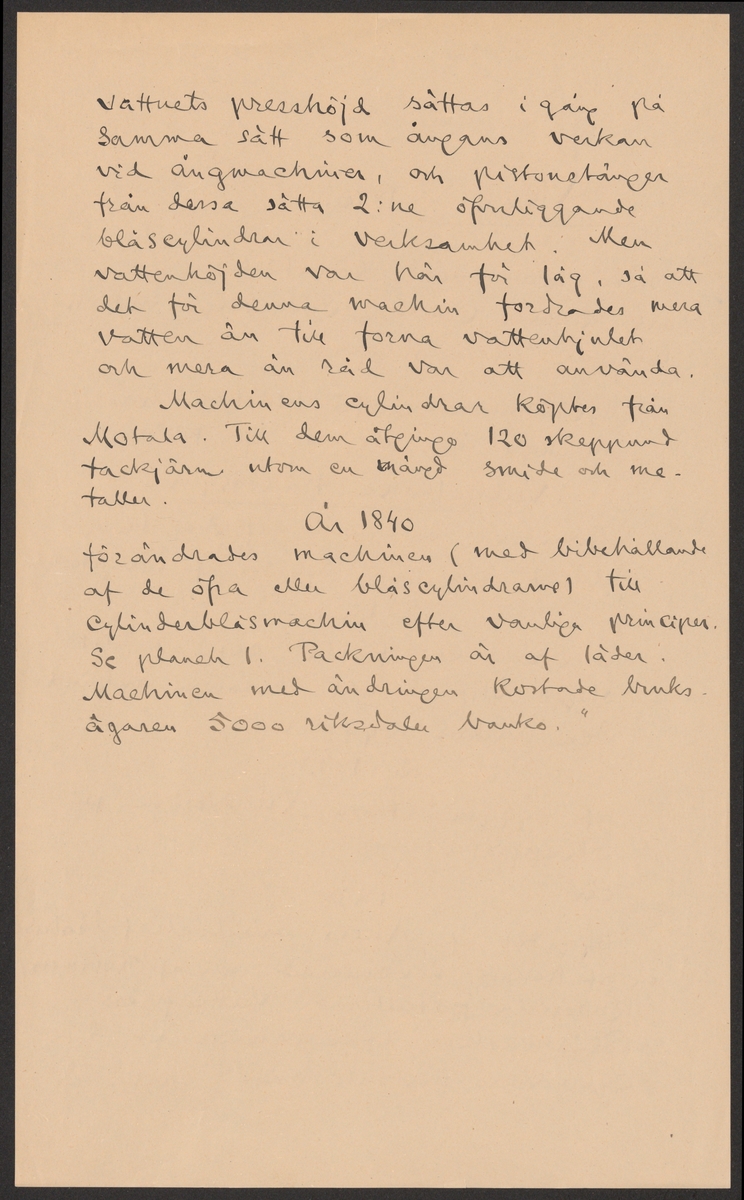 vattnets presshöjd sättas i gång på
samma sätt som ångans verkan
vid ångmachiner, och pistonstänger
från dessa sätta 2:ne öfverliggande
blåscylindrar i verksamhet. Men
vattenhöjden var här för låg, så att
det för denna machin fordrades mera
vatten än till forna vattenhjulet
och mera än råd var att använda.
Machinens cylindrar köptes från
Motala. Till dem åtgingo 120 skeppund
tackjärn utom en mängd smide och me-
taller.
År 1840
förändrades machinen (med bibehållande
af de öfra eller blåscylindrarne) till
cylinderblåsmachin efter vanliga principer.
Se planch 1. Packningen är af läder.
Machinen med ändringen kostade bruks-
ägaren 5000 riksdaler banko."